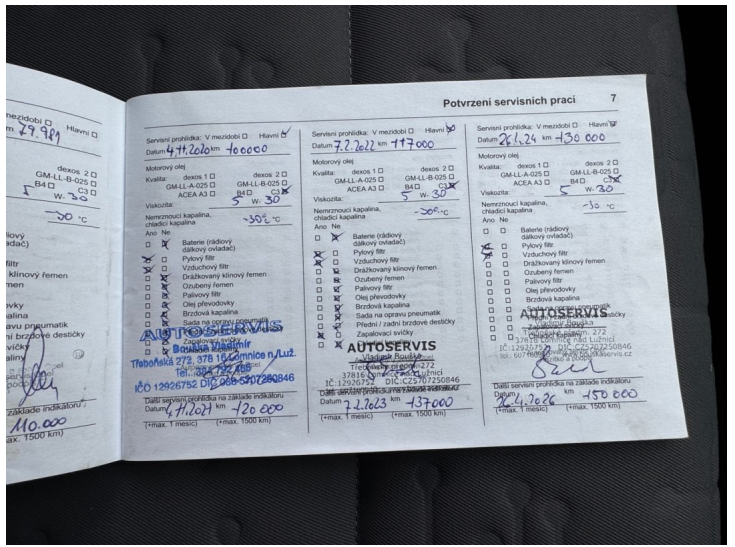 mezidobí ☐ Hlavní ☐
m 79.981
dexos 2 ☐
GM-LL-B-025 ☐
B4 ☐ C3
5 W- 30
-30 °C
dálkový
adač)
filtr
klínový řemen
men
ovky
alina
avu pneumatik
ní brzdové destičky
víčky
aliny
základě indikátoru
110.000
max. 1500 km)
Potvrzení servisních prací 7
Servisní prohlídka: V mezidobí ☐ Hlavní ☑
Datum 4.11.2020 km 100000
Motorový olej
Kvalita: dexos 1 ☐ dexos 2 ☐
GM-LL-A-025 ☐ GM-LL-B-025 ☐
ACEA A3 ☐ B4 ☐ C3 ☒
Viskozita: 5 W- 30
Nemrznoucí kapalina,
chladicí kapalina -30° °C
Ano Ne
Baterie (rádiový
dálkový ovladač)
Pylový filtr
Vzduchový filtr
Drážkovaný klínový řemen
Ozubený řemen
Palivový filtr
Olej převodovky
Brzdová kapalina
Sada na opravu pneumatik
Zapalovací svíčky
AUTOSERVIS
Bouška Vladimír
Třeboňská 272, 378 16 Lomnice n/Luž.
IČO 12926752 DIČ 068-5707250846
Další servisní prohlídka na základě indikátoru
Datum 4.11.2021 km 120 000
(+max. 1 měsíc) (+max. 1500 km)
Servisní prohlídka: V mezidobí ☐ Hlavní ☒
Datum 7.2.2022 km 117000
Motorový olej
Kvalita: dexos 1 ☐ dexos 2 ☐
GM-LL-A-025 ☐ GM-LL-B-025 ☐
ACEA A3 ☐ B4 ☐ C3 ☒
Viskozita: 5 W- 30
Nemrznoucí kapalina,
chladicí kapalina -30° °C
Ano Ne
Baterie (rádiový
dálkový ovladač)
Pylový filtr
Vzduchový filtr
Drážkovaný klínový řemen
Ozubený řemen
Palivový filtr
Olej převodovky
Brzdová kapalina
Sada na opravu pneumatik
Přední / zadní brzdové destičky
Zapalovací svíčky
AUTOSERVIS
Vladimír Bouška
37816 Lomnice nad Lužnicí
IČ:12926752 DIČ:CZ5707250846
Další servisní prohlídka na základě indikátoru
Datum 7.2.2023 km 137000
(+max. 1 měsíc) (+max. 1500 km)
Servisní prohlídka: V mezidobí ☐ Hlavní ☒
Datum 26.4.24 km 130 000
Motorový olej
Kvalita: dexos 1 ☐ dexos 2 ☐
GM-LL-A-025 ☐ GM-LL-B-025 ☐
ACEA A3 ☐ B4 ☐ C3 ☒
Viskozita: 5 W- 30
Nemrznoucí kapalina,
chladicí kapalina -30 °C
Ano Ne
Baterie (rádiový
dálkový ovladač)
Pylový filtr
Vzduchový filtr
Drážkovaný klínový řemen
Ozubený řemen
Palivový filtr
Olej převodovky
Brzdová kapalina
Sada na opravu pneumatik
AUTOSERVIS
Lomnice nad Lužnicí
IČ:12926752 DIČ:CZ5707250846
Další servisní prohlídka na základě indikátoru
Datum 26.4.2026 km 150 000
(+max. 1 měsíc) (+max. 1500 km)